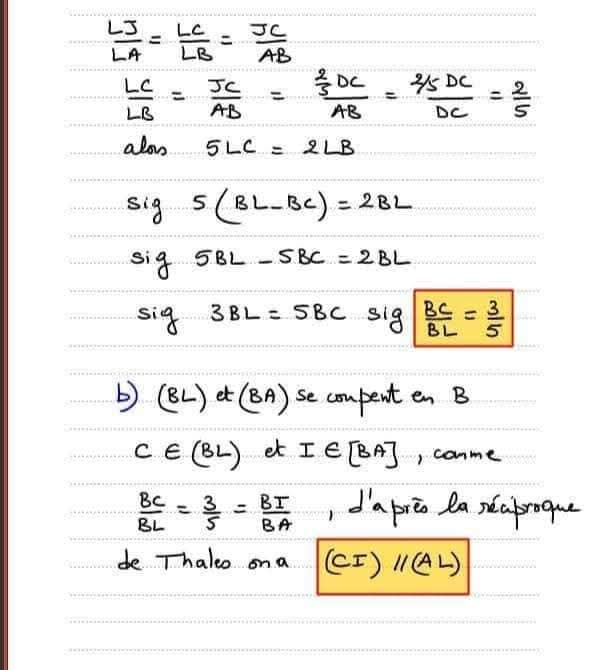 LJ/LA = LC/LB = JC/AB
LC/LB = JC/AB = 2/5 DC/AB = 2/5 DC/DC = 2/5
alors 5LC = 2LB
sig 5(BL-BC) = 2BL
sig 5BL - 5BC = 2BL
sig 3BL = 5BC sig BC/BL = 3/5
b) (BL) et (BA) se coupent en B
C ∈ (BL) et I ∈ [BA], comme
BC/BL = 3/5 = BI/BA, d'après la réciproque
de Thales on a (CI) // (AL)